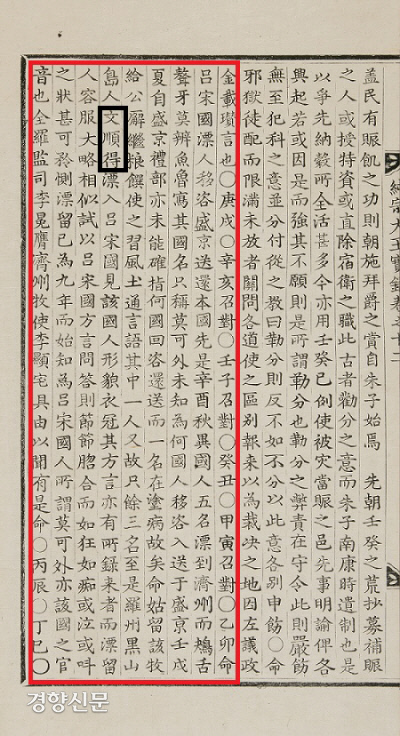 純宗大王實錄卷之十二
盖民有賑飢之功則朝施拜爵之賞自朱子始焉　先朝壬癸之荒抄募補賑
之人或授特資或直除宿衛之職此古者勸分之意而朱子南康時遺制也是
以爭先納穀所全活甚多今亦用壬癸已例使被灾當賑之邑先事明諭俾各
興起若或因是而強其不願則是所謂勒分也勒分之弊責在守令此則嚴飭
無至犯科之意並分付從之教曰勒分則反不如不分以此意各別申飭○命
邪獄徒配而限滿未放者關問各道使之區別報來以為裁决之地因左議政
金載瓚言也○庚戌○辛亥召對○壬子召對○癸丑○甲寅召對○乙卯命
呂宋國漂人移咨盛京送還本國先是辛酉秋異國人五名漂到濟州而鴃舌
聱牙莫辨魚魯寫其國名只稱莫可外未知為何國人移咨入送于盛京壬戌
夏自盛京禮部亦未能確指何國回咨還送而一名在塗病故矣命姑留該牧
給公廨繼粮饌使之習風土通言語其中一人又故只餘三名至是羅州黑山
島人文順得漂入呂宋國見該國人形貌衣冠其方言亦有所錄來者而漂留
人容服大略相似試以呂宋國方言問答則節節脗合而如狂如痴或泣或呌
之狀甚可矜惻漂留已為九年而始知為呂宋國人所謂莫可外亦該國之官
音也全羅監司李冕膺濟州牧使李顯宅具由以聞有是命○丙辰○丁巳○
경향신문